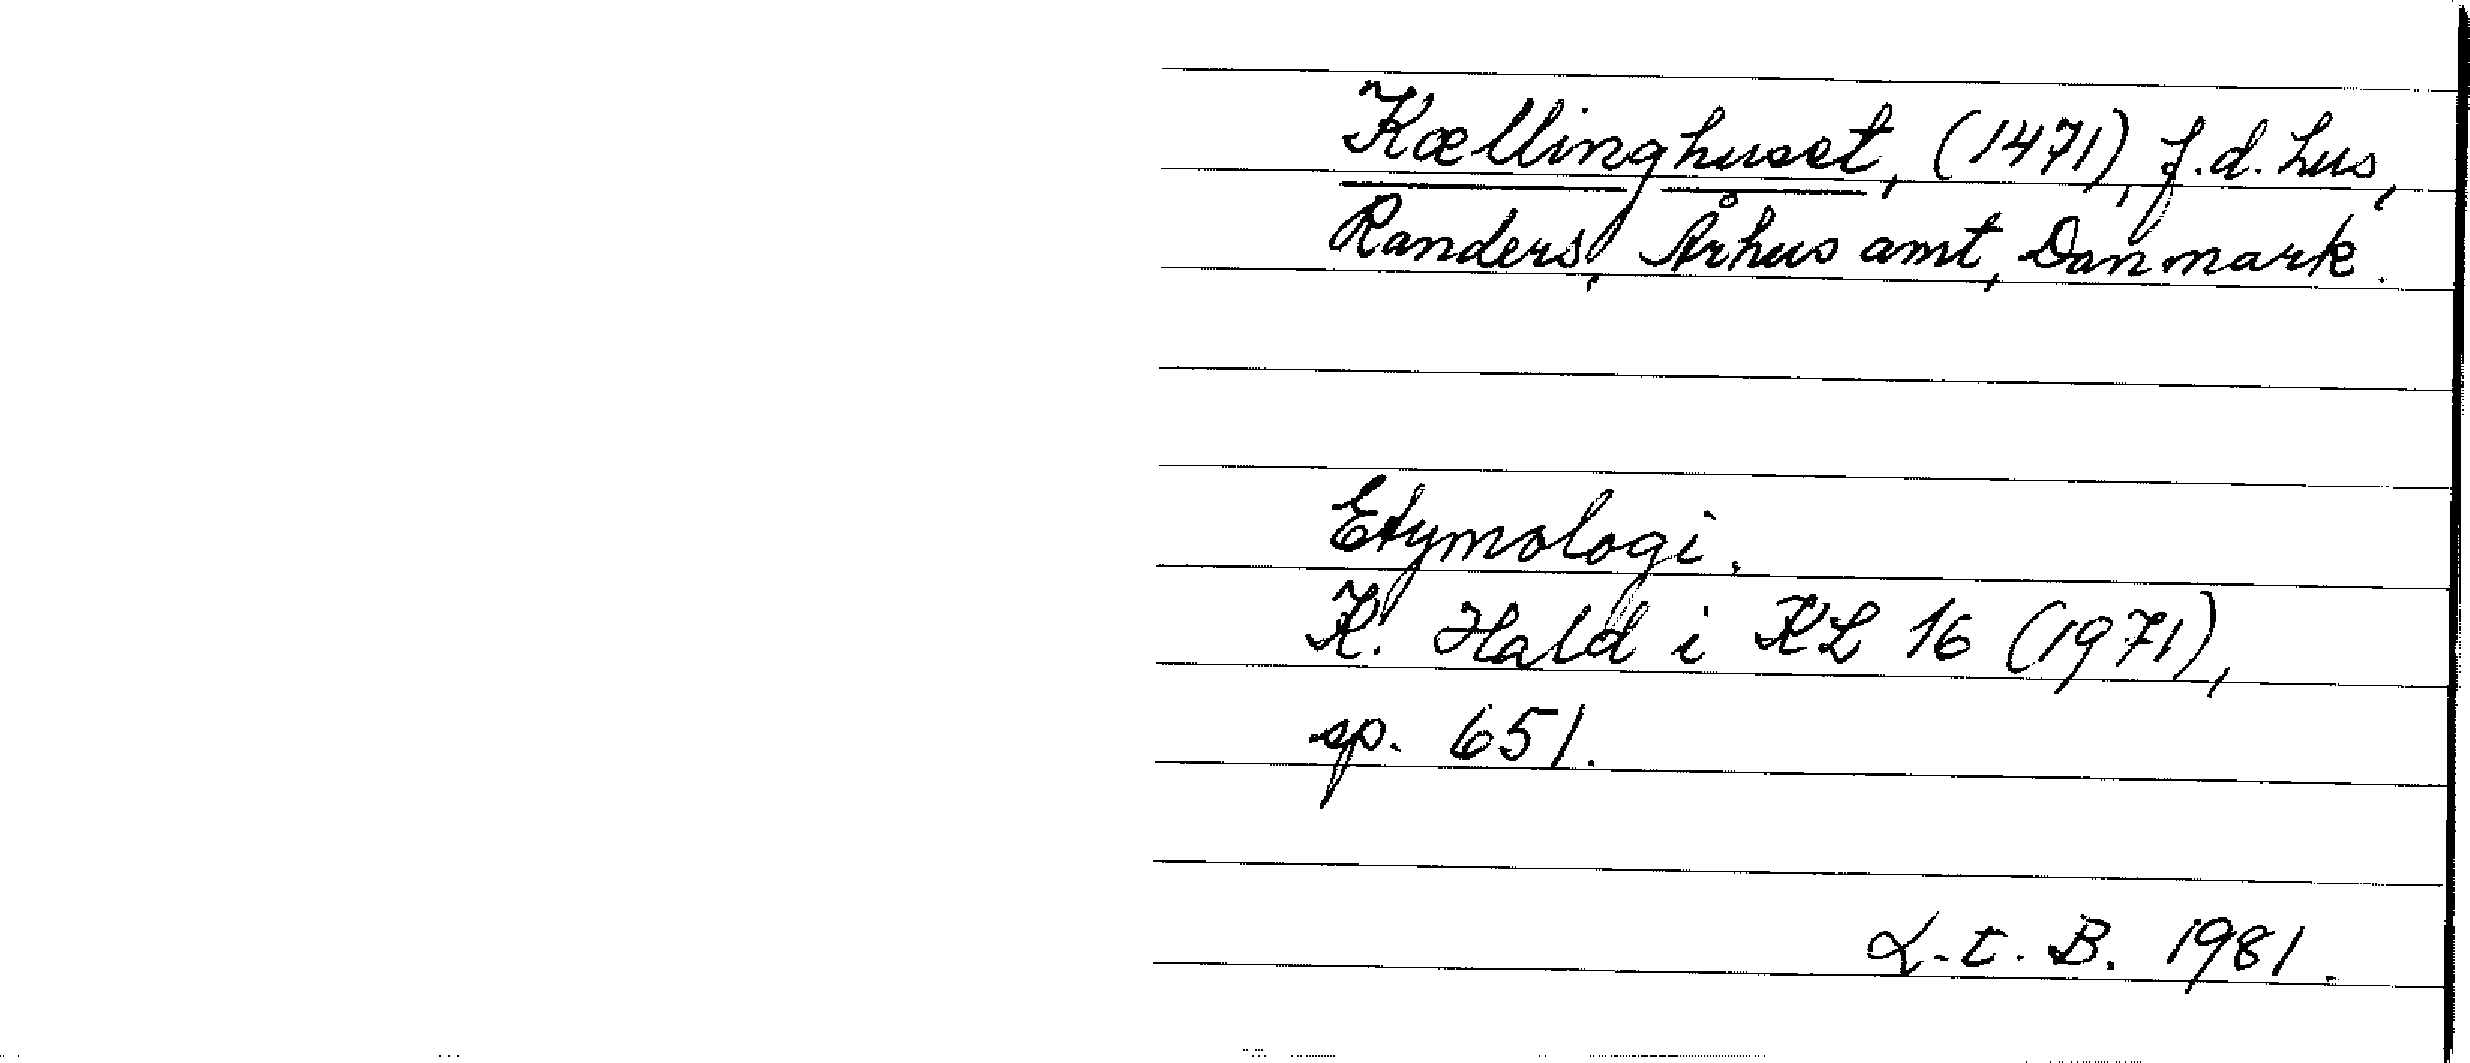 Kællinghuset, (1471), f.d. hus,
Randers, Århus amt, Danmark.
Etymologi.
K. Hald i KL 16 (1971),
sp. 651.
L.t. B. 1981.